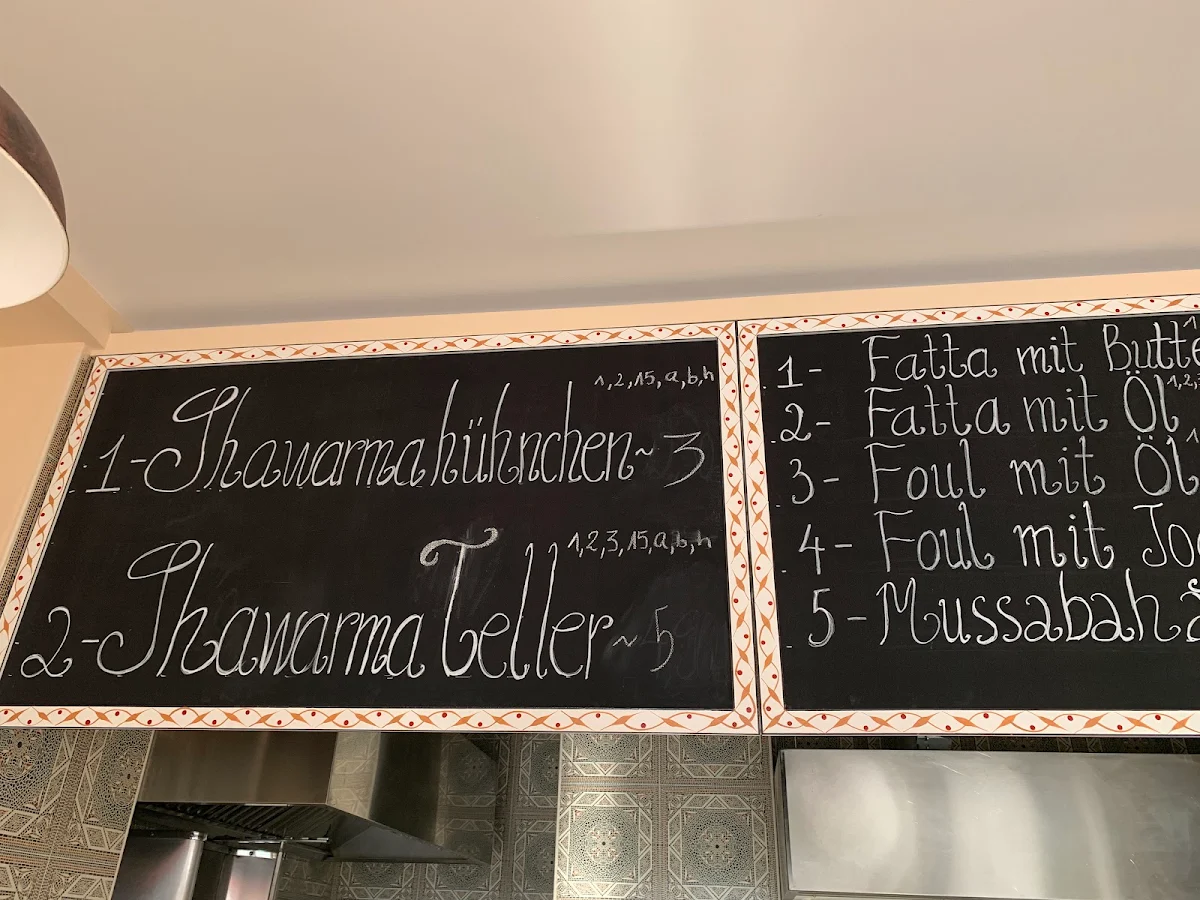 1,2,15,a,b,h
1- Shawarma hühnchen ~ 3
1,2,3,15,a,b,h
2- Shawarma Teller ~ 5
1- Fatta mit Butte
2- Fatta mit Öl 1,2,3
3- Foul mit Öl 1
4- Foul mit Jo
5- Mussabaha